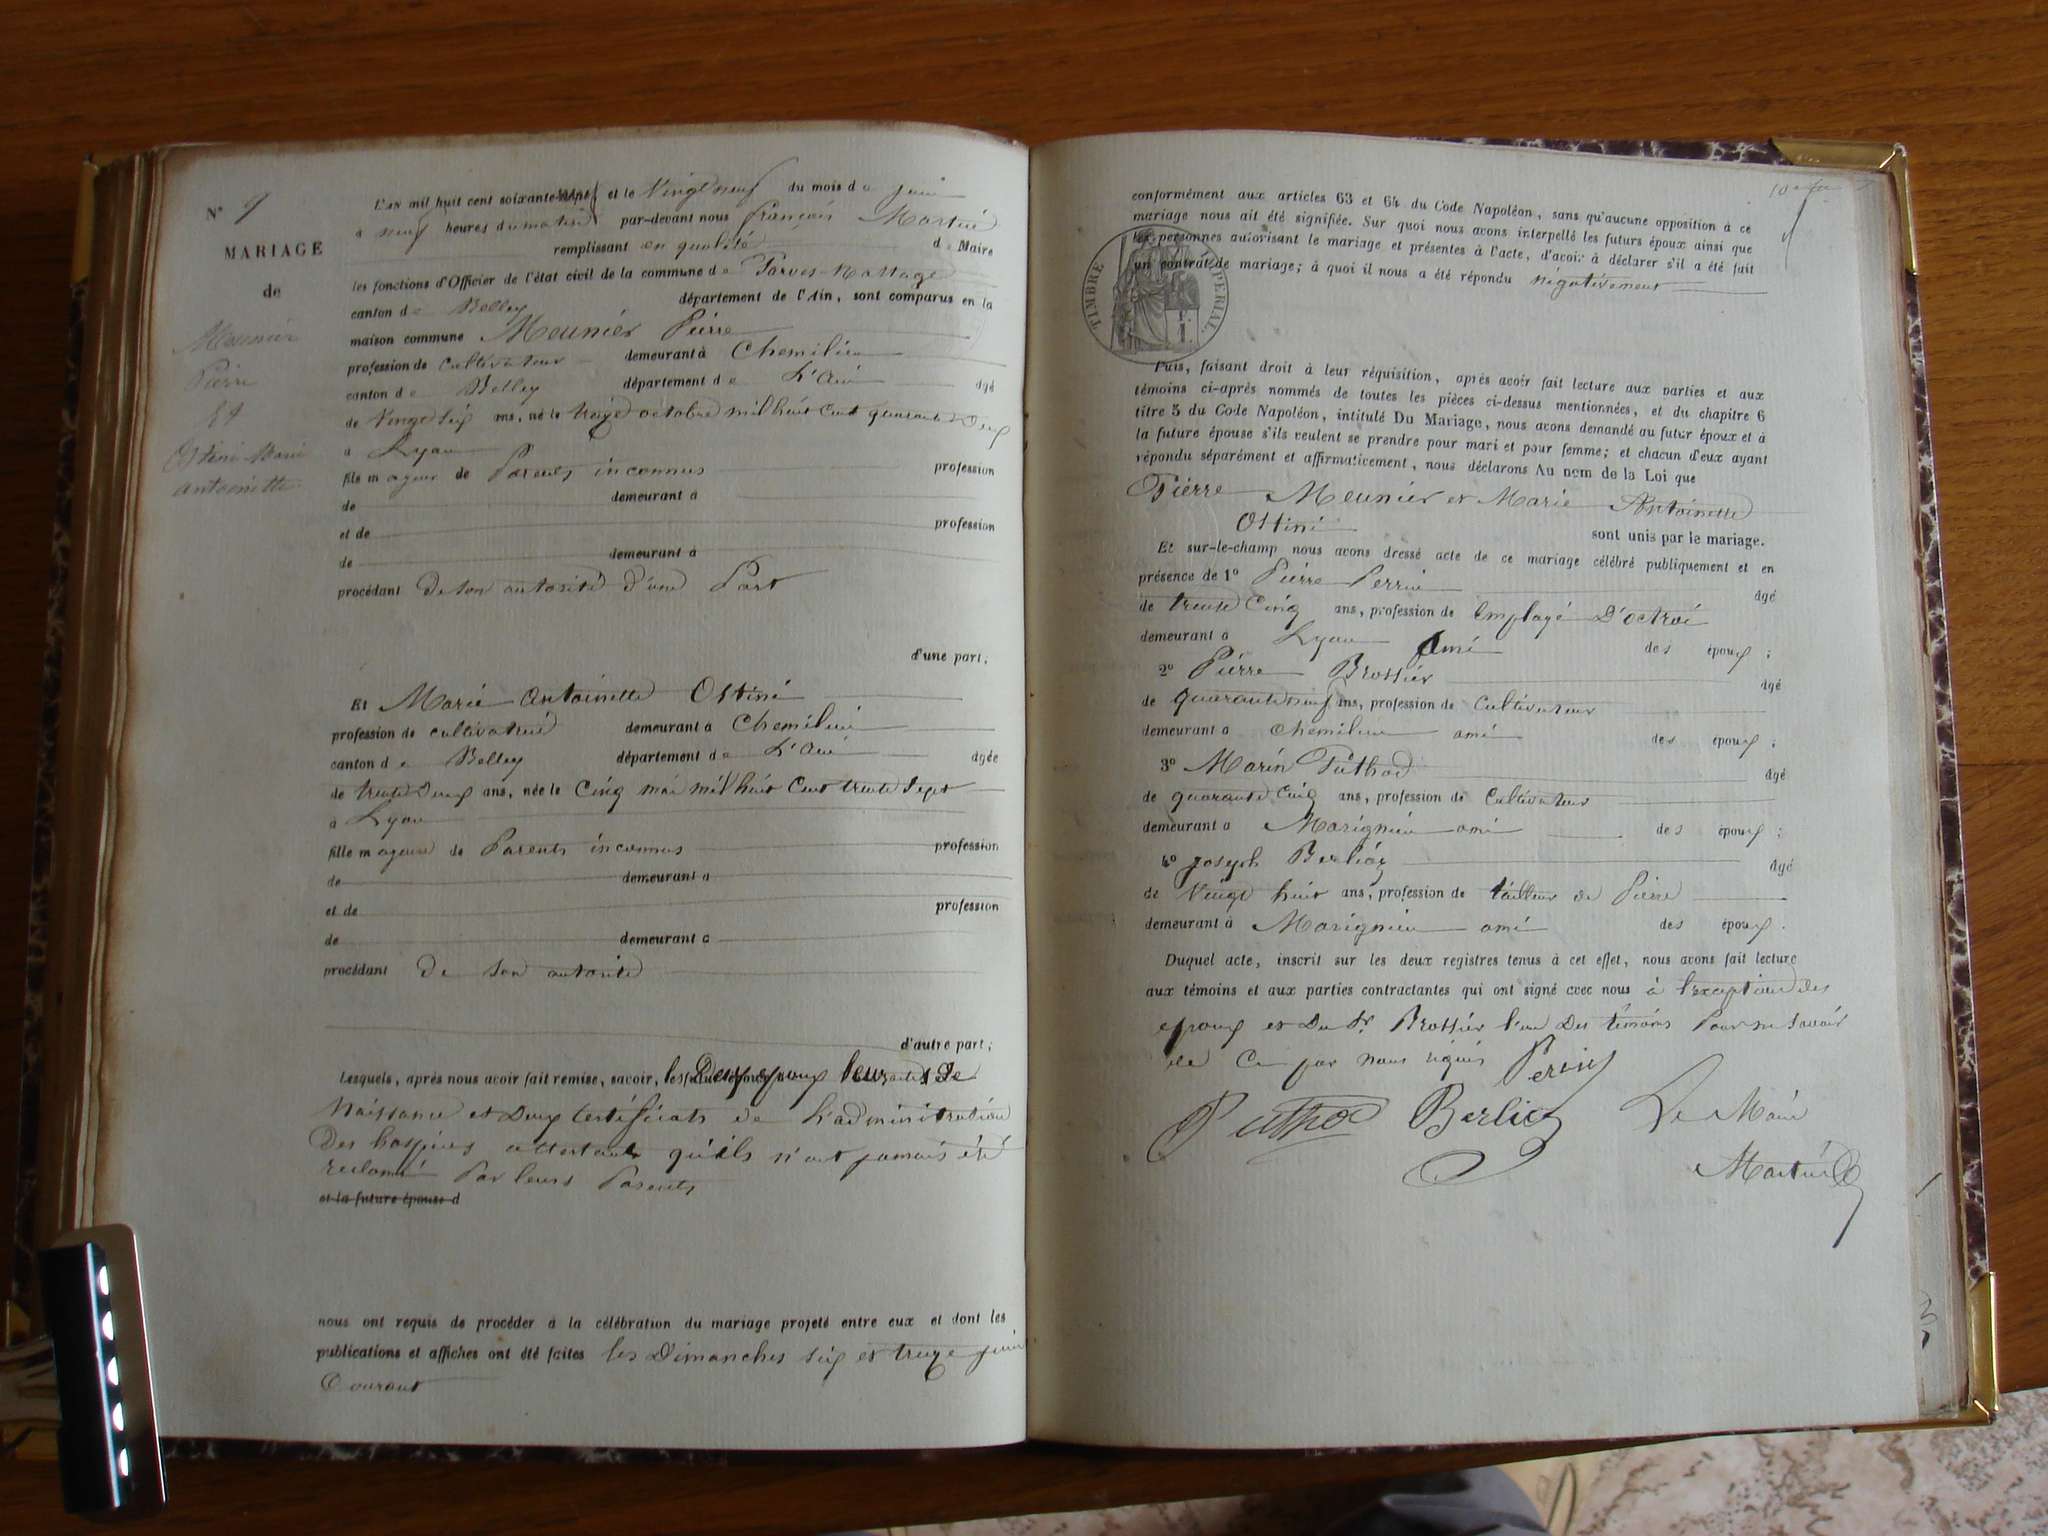 N° 9
MARIAGE
de
Meunier
Pierre
Et
Ostini Marie
antoinette
L'AN mil huit cent soixante-neuf et le Vingt neuf du mois de juin
à neuf heures du matin par-devant nous françois Martin
remplissant en qualité de Maire
les fonctions d'Officier de l'état civil de la commune de Parves-Nattage
canton de Belley département de l'Ain, sont comparus en la
maison commune Meunier Pierre
profession de cultivateur demeurant à Chemilieu
canton de Belley département de L'Ain âgé
de Vingt Six ans, né le treize octobre mil huit cent quarante Deux
à Lyon
fils majeur de Parents inconnus profession
de demeurant à
et de profession
de demeurant à
procédant De son autorité d'une Part
d'une part;
Et Marie antoinette Ostini
profession de cultivatrice demeurant à Chemilieu
canton de Belley département de L'Ain âgée
de trente Deux ans, née le Cinq mai mil huit Cent trente Sept
à Lyon
fille majeure de Parents inconnus profession
de demeurant à
et de profession
de demeurant à
procédant De son autorité
d'autre part;
Lesquels, après nous avoir fait remise, savoir, les Deux epoux leur acte De
Naissance et Deux Certificats de L'administration
Des hospices attestant qu'ils n'ont jamais été
reclamé Par leurs Parents
et la future épouse d
nous ont requis de procéder à la célébration du mariage projeté entre eux et dont les
publications et affiches ont été faites les Dimanches Six et treize juin
Courant
conformément aux articles 63 et 64 du Code Napoléon, sans qu'aucune opposition à ce
mariage nous ait été signifiée. Sur quoi nous avons interpellé les futurs époux ainsi que
les personnes autorisant le mariage et présentes à l'acte, d'avoir à déclarer s'il a été fait
un contrat de mariage; à quoi il nous a été répondu négativement
TIMBRE IMPÉRIAL
1 F.
Puis, faisant droit à leur réquisition, après avoir fait lecture aux parties et aux
témoins ci-après nommés de toutes les pièces ci-dessus mentionnées, et du chapitre 6
titre 5 du Code Napoléon, intitulé Du Mariage, nous avons demandé au futur époux et à
la future épouse s'ils veulent se prendre pour mari et pour femme; et chacun d'eux ayant
répondu séparément et affirmativement, nous déclarons Au nom de la Loi que
Pierre Meunier et Marie Antoinette
Ostini sont unis par le mariage.
Et sur-le-champ nous avons dressé acte de ce mariage célébré publiquement et en
présence de 1° Pierre Perrin âgé
de trente Cinq ans, profession de Employé D'octroi
demeurant à Lyon Ami des époux;
2° Pierre Brossier âgé
de quarante neuf ans, profession de Cultivateur
demeurant à Chemilieu ami des époux;
3° Marin Puthod âgé
de quarante Cinq ans, profession de Cultivateur
demeurant à Marignieu ami des époux;
4° Joseph Berlioz âgé
de Vingt huit ans, profession de tailleur de Pierre
demeurant à Marignieu ami des époux.
Duquel acte, inscrit sur les deux registres tenus à cet effet, nous avons fait lecture
aux témoins et aux parties contractantes qui ont signé avec nous à l'exception des
epoux et Du Sr Brossier l'un Des témoins Pour ne Savoir
de Ce par nous requis Perrin
Puthod Berlioz Le Maire
Martin